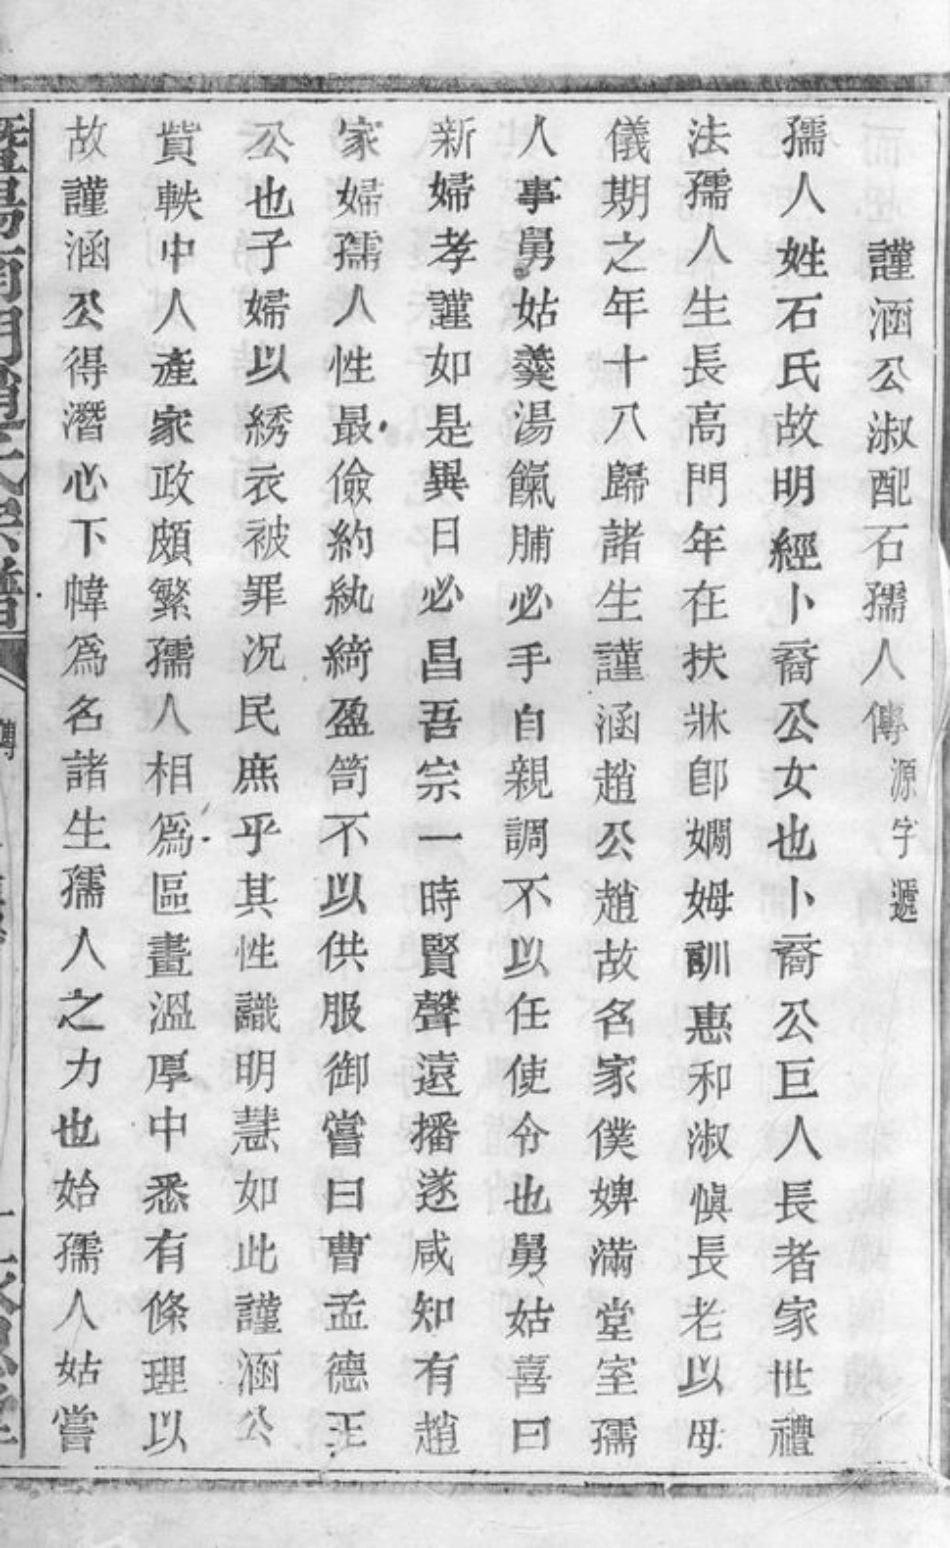 謹涵公淑配石孺人傳源字遞
孺人姓石氏故明經卜裔公女也卜裔公巨人長者家世禮
法孺人生長高門年在扶牀卽嫺姆訓惠和淑愼長老以母
儀期之年十八歸諸生謹涵趙公趙故名家僕婢滿堂室孺
人事舅姑羹湯餼脯必手自親調不以任使令也舅姑喜曰
新婦孝謹如是異日必昌吾宗一時賢聲遠播遂咸知有趙
家婦孺人性最儉約紈綺盈笥不以供服御嘗曰曹孟德王
公也子婦以綉衣被罪況民庶乎其性識明慧如此謹涵公
貲軼中人產家政頗繁孺人相爲區畫溫厚中悉有條理以
故謹涵公得潛心下幃爲名諸生孺人之力也始孺人姑嘗
暨陽南門趙氏宗譜 傳